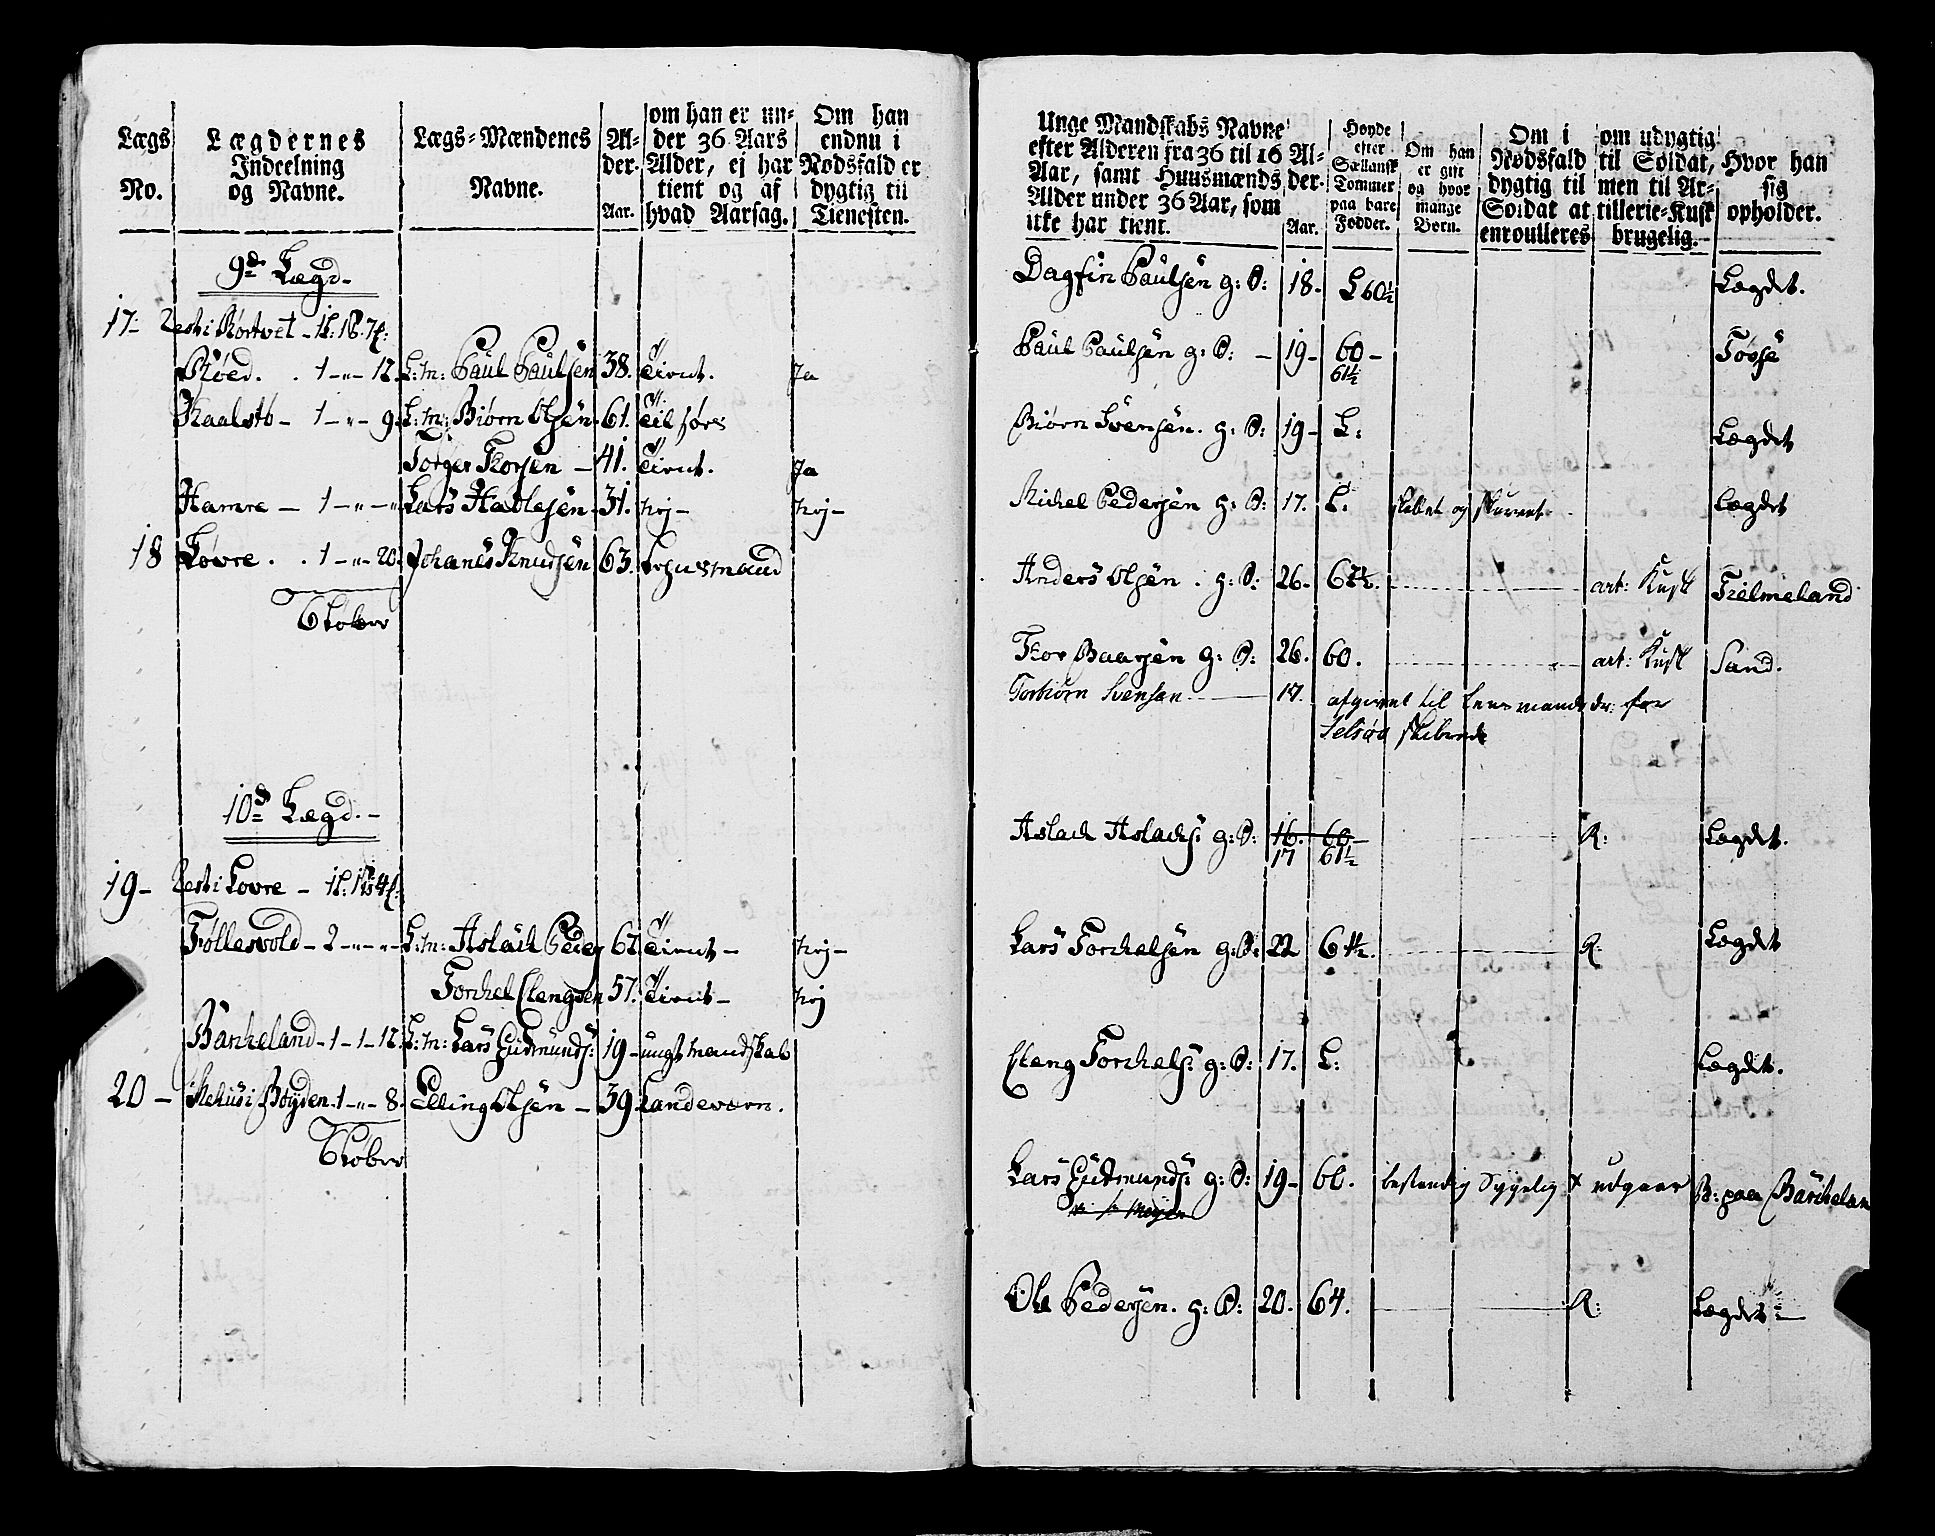 Lægs
No.
Lægdernes
Indeelning
og Navne.
Lægs-Mændenes
Navne.
Al-
der.
Aar.
om han er un-
der 36 Aars
Alder, ej har
tient og af
hvad Aarsag.
Om han
endnu i
Nødsfald er
dygtig til
Tienesten.
9de Lægd-
17- Rest i Rørtvet
Røed. . 1-"- 12. L:m: Paul Paulsen 38. Tient. Ja
Kaalstø - 1-"- 9. L:m: Biørn Olsen 61. Til søes
Torger Thorsen - 41. Tient. Ja
Hamre - 1-"-" Lars Hadlesen - 31. Nej- Nej-
18 Løvre. . 1-"- 20. Johanes Knudsen 63.
10de Lægd.-
19- Rest i Lovre
Føllesvold - 2-"-"- L:m: Aslach Peder 62. Tient- Nej-
Torchel Elengsen 57. Tient- Nej
Barkeland - 1-1-12. L:m: Lars Gudmunds: 19- ungt mandskab
20- Mehus i Bøyden 1-"- 8. Elling Olsen - 39. Landeværn.
Unge Mandskabs Navne
efter Alderen fra 36 til 16
Aar, samt Huusmænds
Alder under 36 Aar, som
ikke har tient.
Al-
der.
Aar.
Høyde
efter
Siællansk
Tommer
paa bare
Fødder.
Om han
er gift
og hvor
mange
Børn.
Om i
Nødsfald
dygtig til
Soldat at
enroulleres
om udygtig
til Soldat,
men til Ar-
tillerie-Kusk
brugelig.
Hvor han
sig
opholder.
Dagfin Paulsen g: S: 18. L 60½ Lægdet.
Paul Paulsen g: S: - 19- 60- Tøsse
61½
Biørn Svensen. g: S: 19- L: Lægdet
Michel Pedersen g: S: 17. L. skallet og skurvet Lægdet
Anders Olsen. g: S: 26. art: Kusk Fielmeland
Thor Baarsen g: S: 26. 60. art: Kusk Sand.
Torbiørn Svensen 17. afgivet til Lensmands dr: for
Selsøe skibrede
Aslach Aslachs: g: S: 16. 60- R: Lægdet.
17 61½
Lars Torchelsen g: S: 22 61½. R: Lægdet
Eleng Torchels: g: S: 17. L: Lægdet.
Lars Gudmunds: g: S: 19- 60. bestendig Sygelig + udgaar B: paa Barkelan
Ole Pedersen. g: S: 20. 64. R: Lægdet-